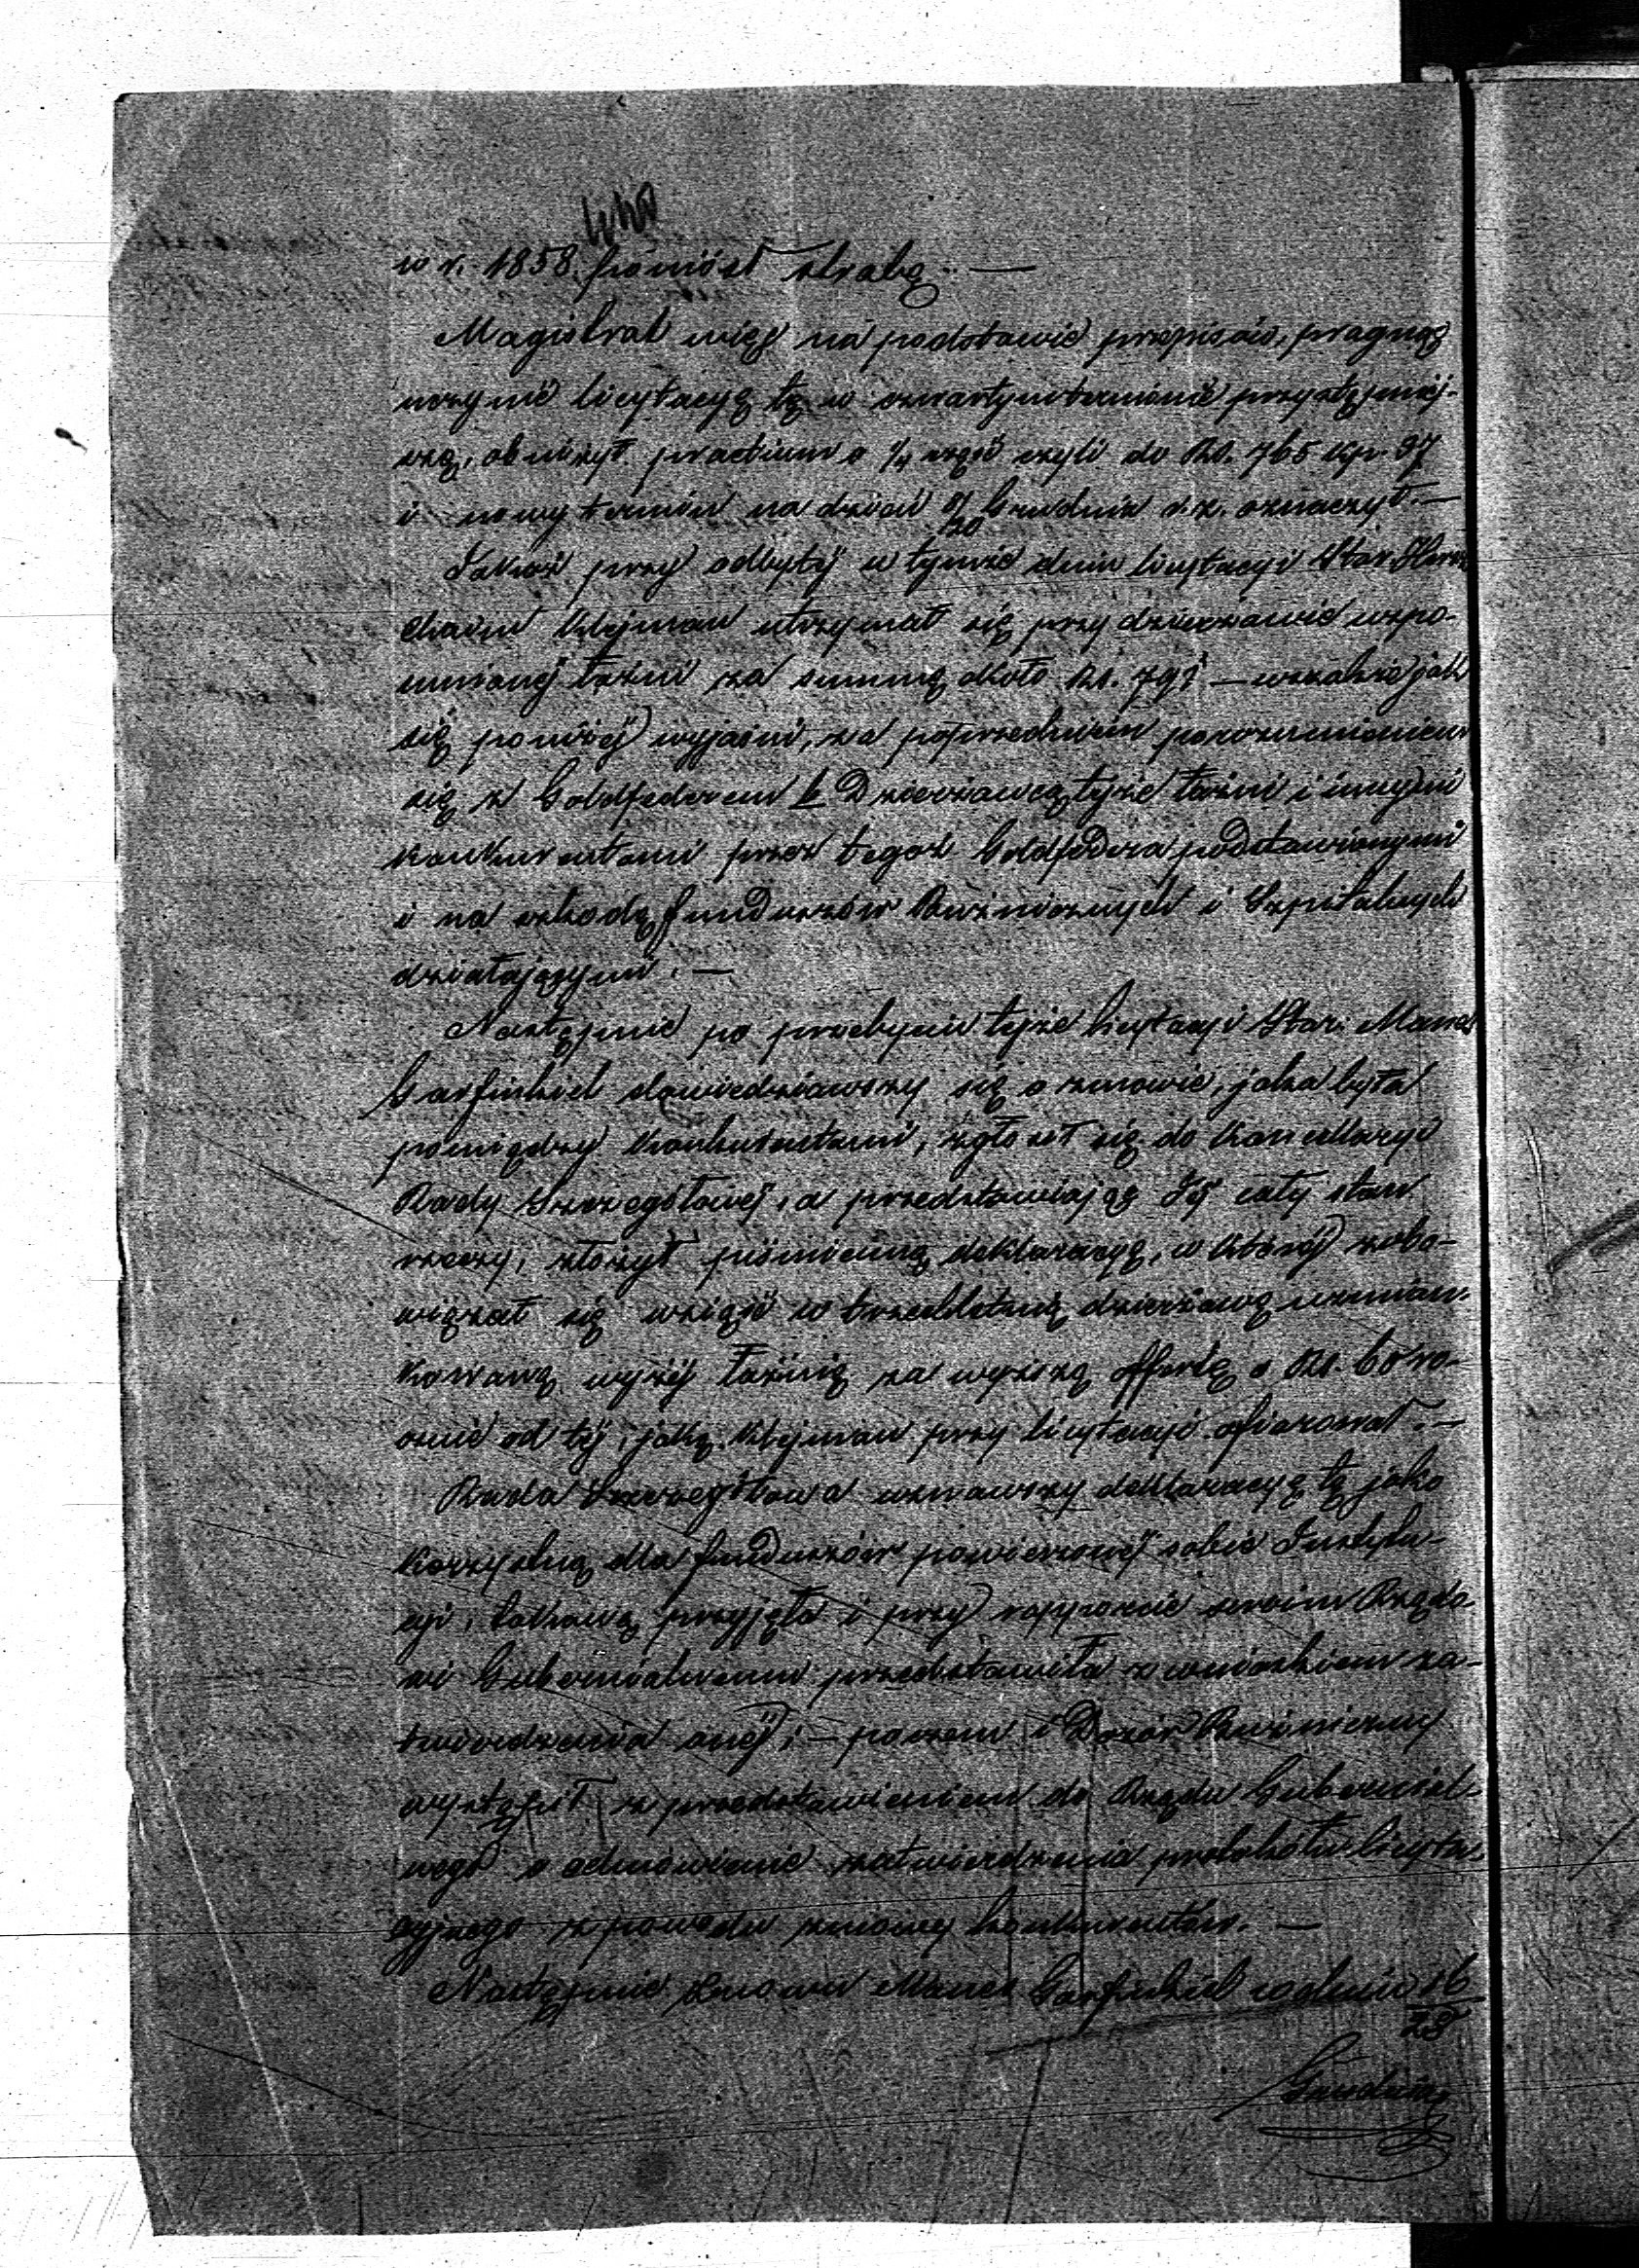 w r. 1858 poniósł stratę. —
Magistrat więc na podstawie przepisów, pragnąc
uczynić licytacyą tę w czwartym terminie przystępniej-
szą, obniżył praetium o 1/4 część czyli do Rs. 765 kp. 97
i nowy termin na dzień 8/20 Grudnia r.z. oznaczył. —
Jakoż przy odbytej w tymże dniu licytacyi Star.
Chaim Klejman utrzymał się przy dzierżawie wspo-
mnionej łaźni za summę około Rs. 791 — wszakże jak
się poniżej wyjaśni, za poprzedniem porozumieniem
się z Goldfederem b Dzierżawcą tejże łaźni i innymi
konkurentami przez tegoż Goldfedera podstawionymi
i na szkodę funduszów Bużniczych i Szpitalnych
działającymi. —
Następnie po przebyciu tejże licytacyi Star. Manes
Garfinkiel dowiedziawszy się o zmowie, jaka była
pomiędzy konkurentami, zgłosił się do Kancellaryi
Rady Szczegółowej, a przedstawiając Jej cały stan
rzeczy, złożył piśmienną deklaracyą, w której zobo-
wiązał się wziąść w trzechletnią dzierżawę wzmian-
kowaną wyżej łaźnię za wyższą offertę o Rs. 60 ro-
cznie od tej, jaką Klejman przy licytacyi ofiarował. —
Rada Szczegółowa uznawszy deklaracyą tę jako
korzystną dla funduszów powierzonej sobie Instytu-
cyi, takową przyjęła i przy rapporcie swoim Rządo-
wi Gubernialnemu przedstawiła z wnioskiem za-
twierdzenia onej; — poczem i Dozór Bużniczy
wystąpił z przedstawieniem do Rządu Gubernial-
nego o odmówienie zatwierdzenia protokółu licyta-
cyjnego z powodu zmowy konkurentów. —
Następnie znowu Manes Garfinkiel w dniu 16/28
Grudnia